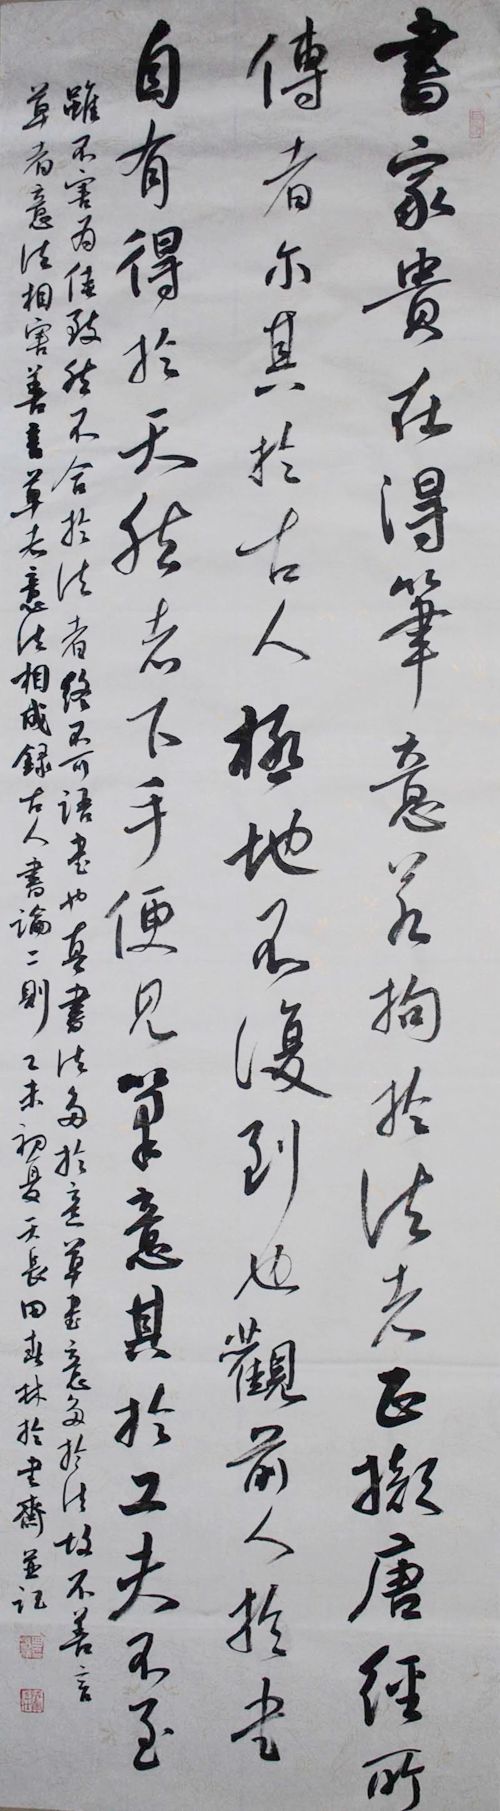 書家貴在得筆意若拘於法者正擬唐經所
傳者尔其於古人極地不復到也觀前人於書
自有得於天然者下手便見筆意其於工夫不至
雖不害為佳致然不合於法者終不可語書也真書法多於意草書意多於法故不善言
草者意法相害善書草者意法相成録古人書論二則乙未初夏天長田春林於書齋並記